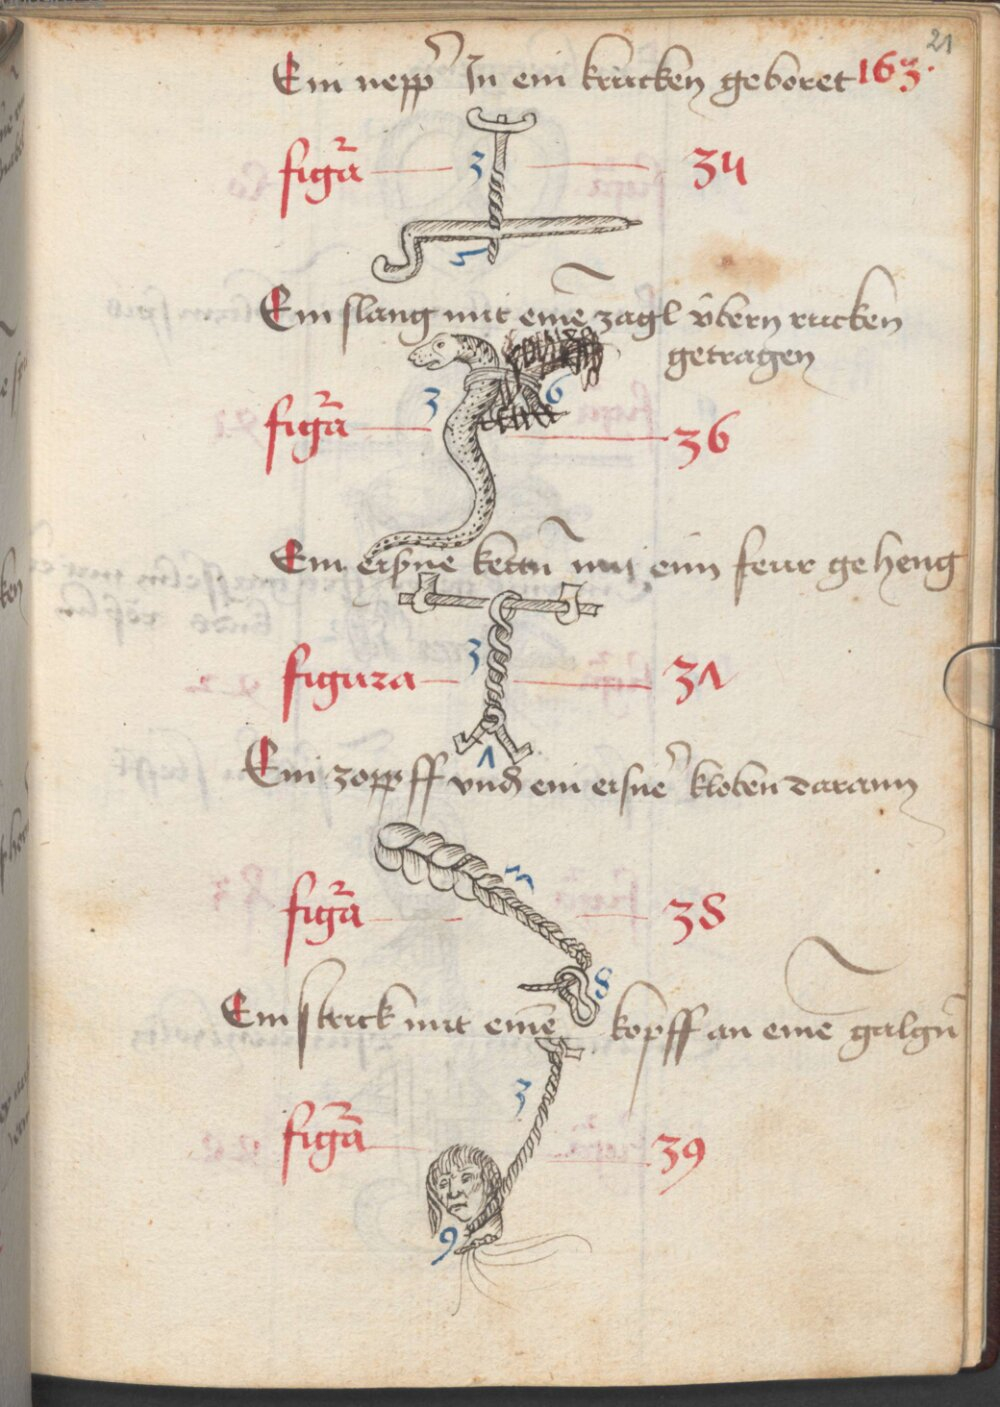 21
Ein nepp̄ In ein krucken geboret 163.
figūa 3 34
5
Ein slang mit einē zagl vbern rucken
getragen
figūa 3 6 36
Ein eisine ein feur geheng
figura 3 37
7
Ein zopff vnd ein eisnē kloben darann
3
figūa 38
8
Ein strick mit einē kopff an eine galgn̄
3
figūa 39
9